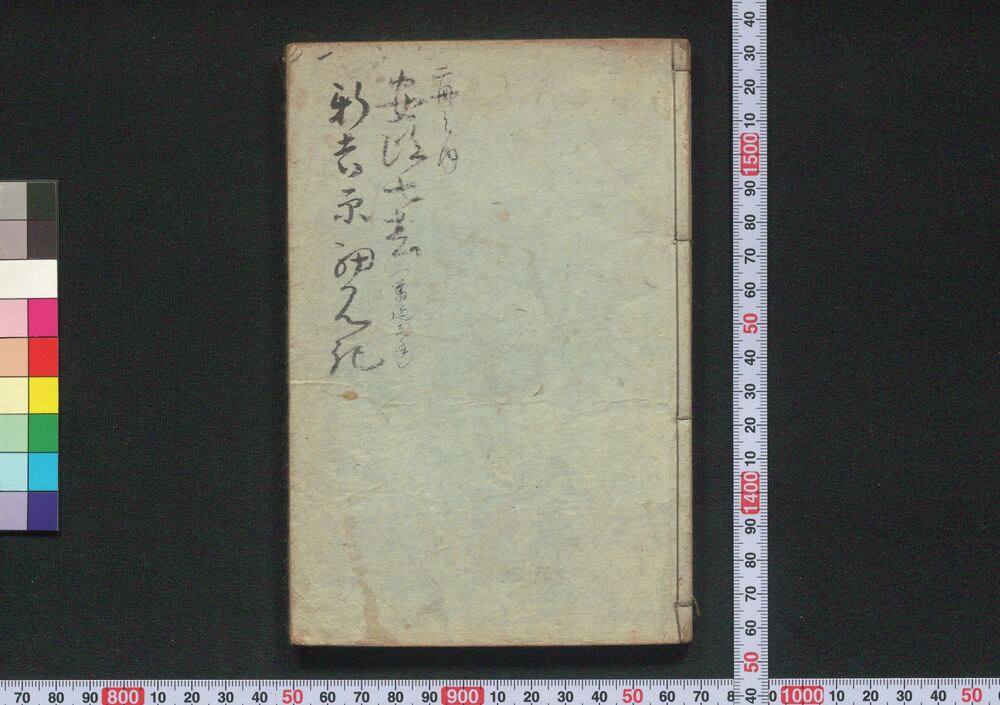 二冊之内
安政七春(萬延元年
新吉原細見記
40
30
20
10
1500
90
80
70
60
50
40
30
20
10
1400
90
80
70
60
50
40
70 80 90 800 10 20 30 40 50 60 70 80 90 900 10 20 30 40 50 60 70 1000 10 20 30 40 50